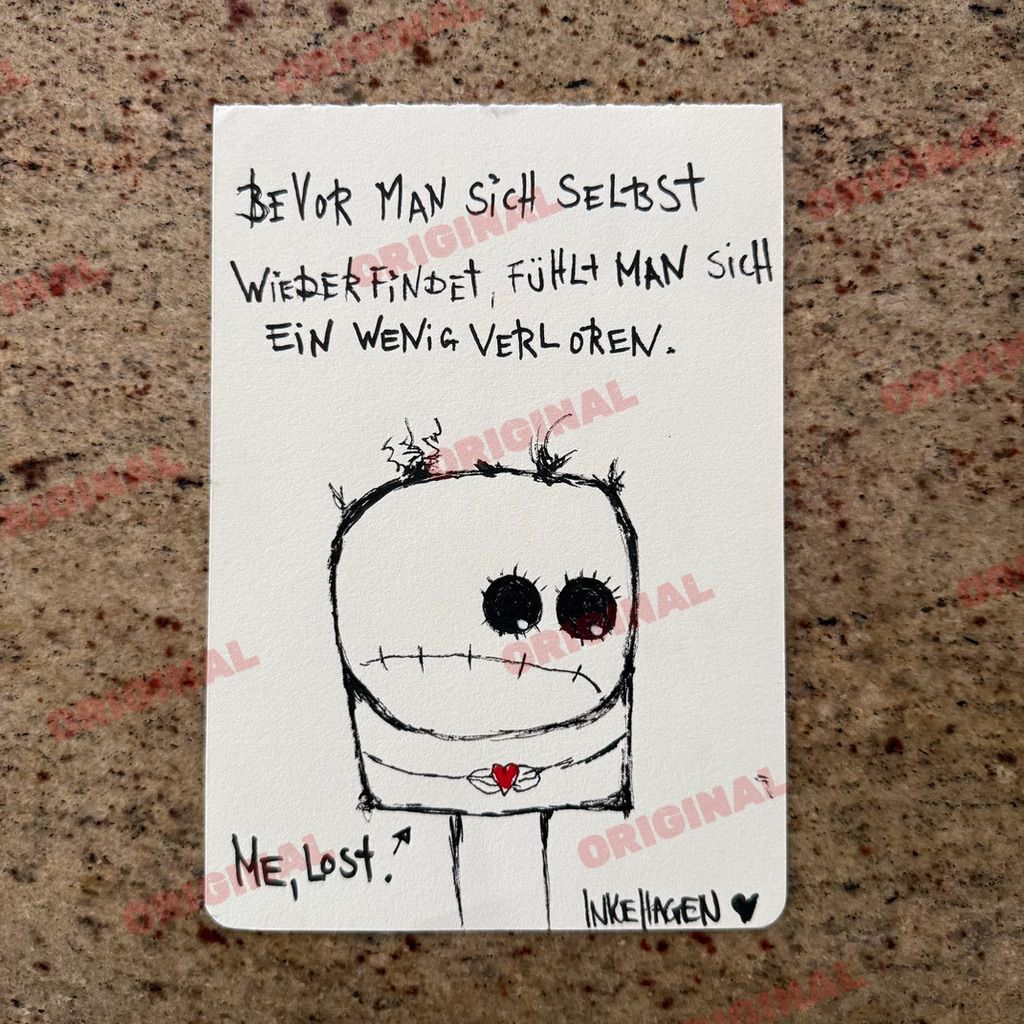 BEVOR MAN SiCH SELBST
WiEDERFiNDET, FÜHLT MAN SiCH
EiN WENiG VERLOREN.
ME, LOST.
INKEHAGEN ♥
ORIGINAL
ORIGINAL
ORIGINAL
ORIGINAL
ORIGINAL
ORIGINAL
ORIGINAL
ORIGINAL
ORIGINAL
ORIGINAL
ORIGINAL
ORIGINAL
ORIGINAL
ORIGINAL